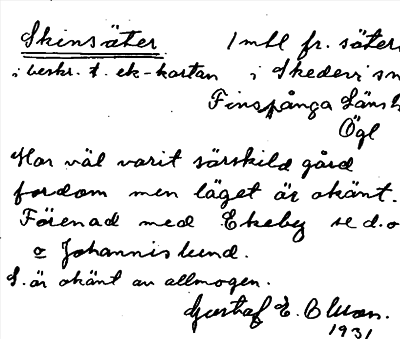 Skinsäter 1 mtl fr. säter
i beskr. t. ek-kartan i Skedevi sn
Finspånga Länsh
Ögl
Har väl varit särskild gård
fordom men läget är okänt.
Förenad med Ekeby se d.o
o Johannislund.
S. är okänt av allmogen.
Gustaf E. Olsson.
1931